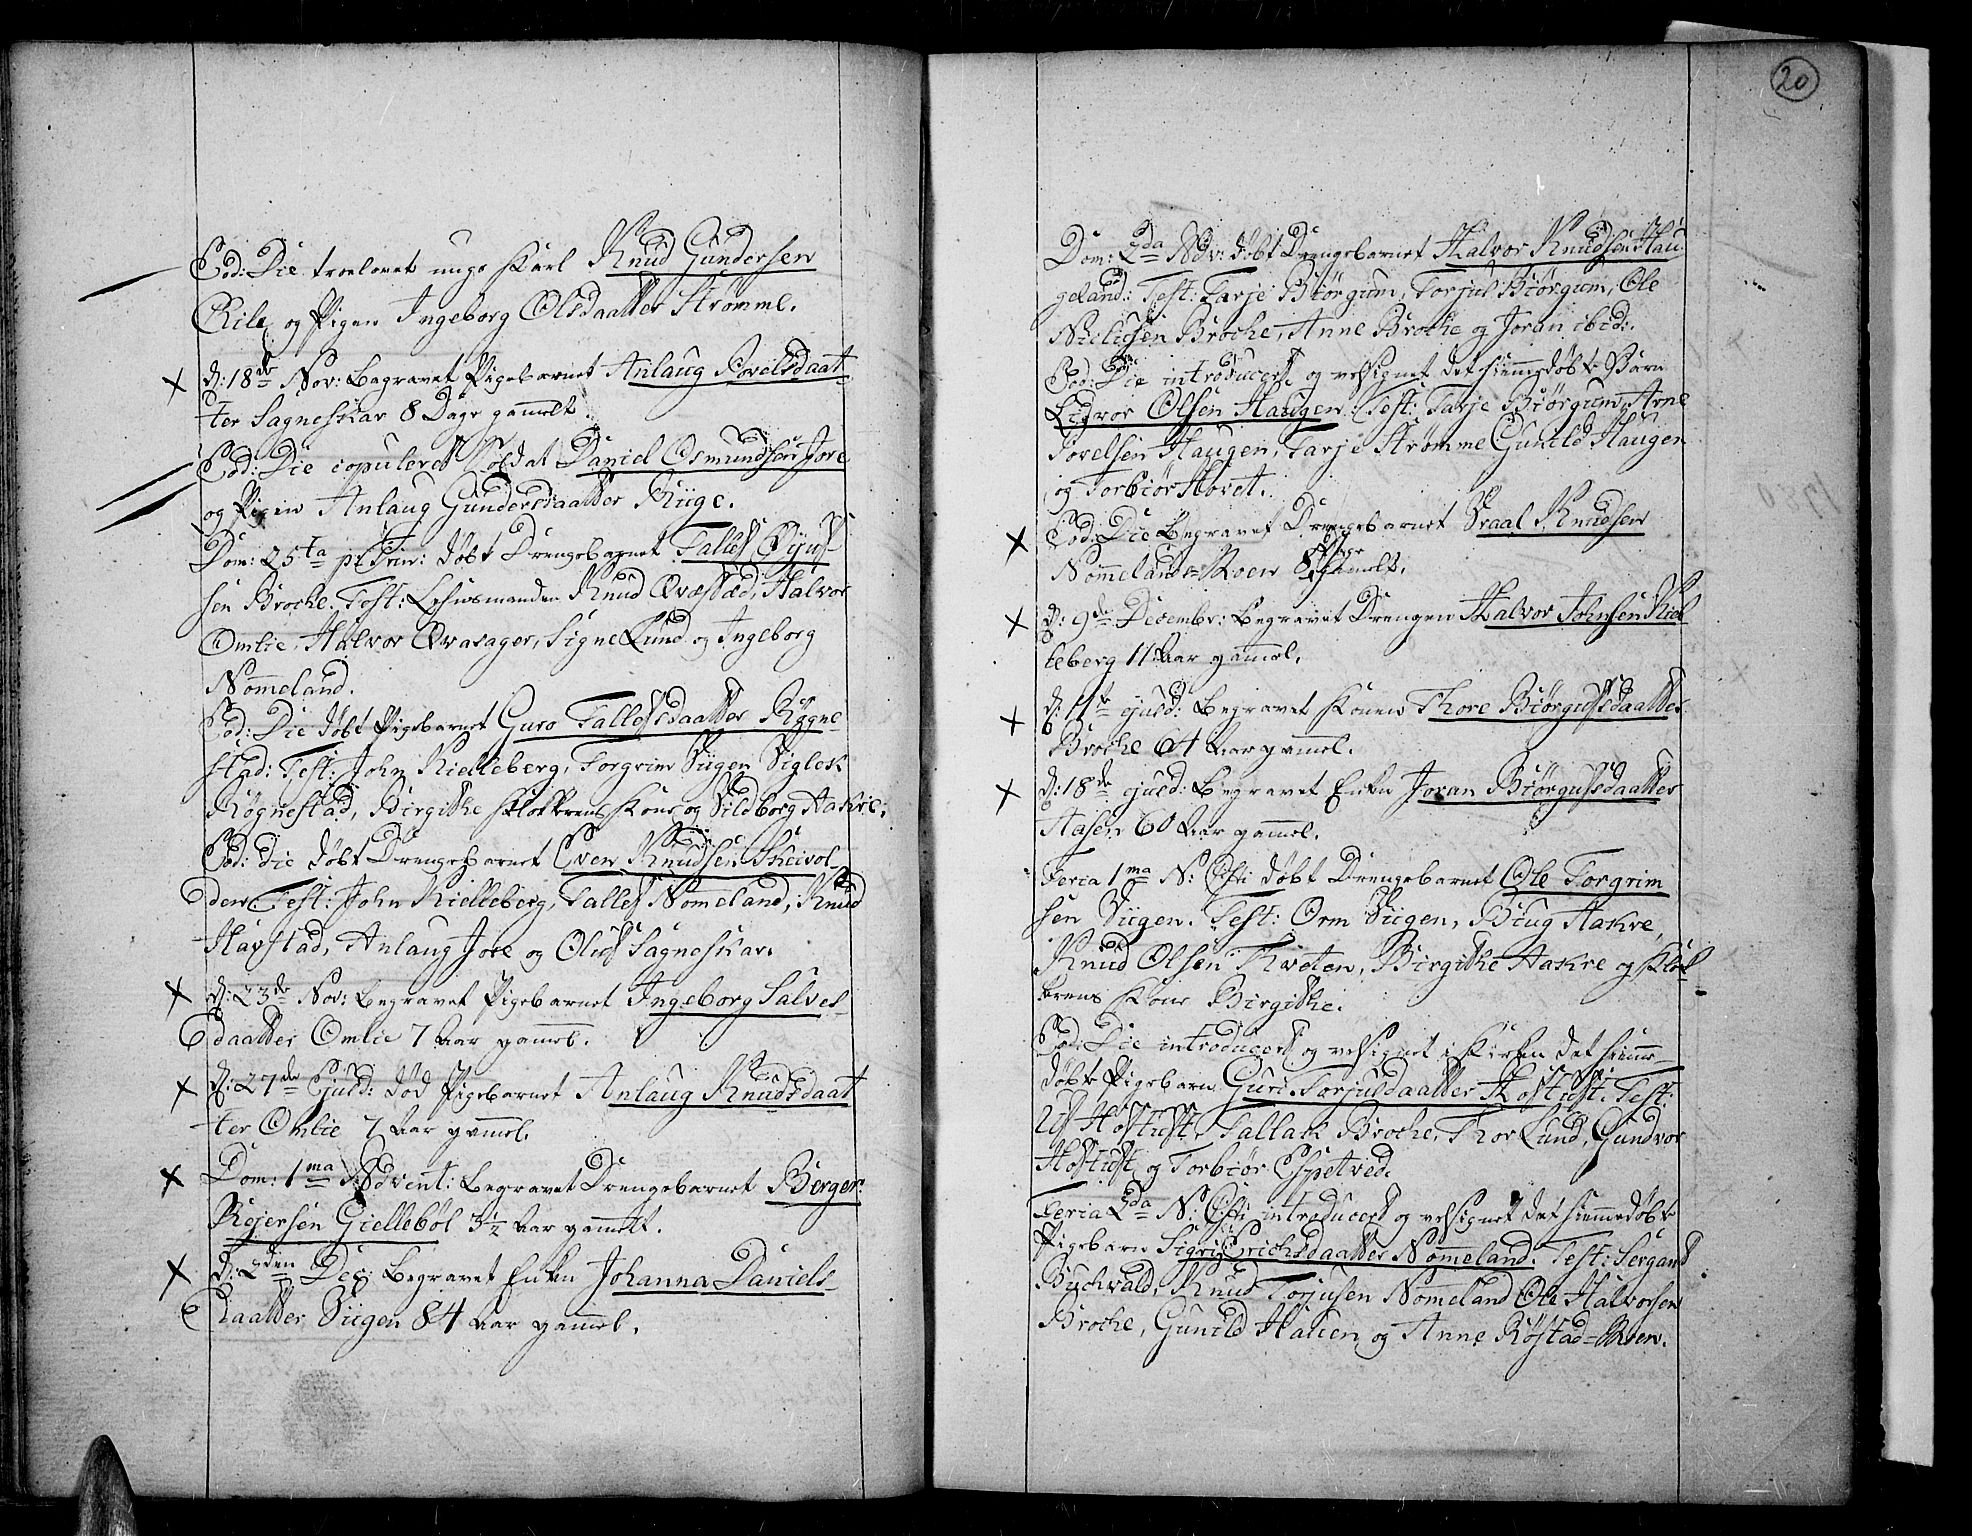 Eod: Die trolovet unge Karl Knud Gundersen
Rike og Pigen Ingeborg Olsdaatter Strømme.
d: 18de Nov: Begravet Pigebarnet Anlaug Povelsdaat-
ter Sagneskar 8 Dage gammelt.
Eod: Die copuleret Soldat Daniel Osmundsen Jore
og Pigen Anlaug Gundersdaatter Riige.
Dom: 25ta p: Trin: døbt Drengebarnet Tallef Gjus-
sen Broche. Test: Lehnsmanden Knud Qvæstad, Halvor
Omlie, Halvor Qvasager, Signe Lund og Ingeborg
Nommeland.
Eod: Die døbt Pigebarnet Guro Tallefsdaatter Røgne-
stad: Test: John Kielleberg, Torgrim Viigen Siglek
Røgnestad, Birgithe Klokkerens Kone og Sildborg Aakre.
Eod: die døbt Drengebarnet Even Knudsen Skeivol-
den. Test: John Kielleberg, Tallef Nommeland, Knud
Havstad, Anlaug Jore og Oluf Sagneskar.
d: 23de Nov: Begravet Pigebarnet Ingeborg Salves-
daatter Omlie 7 Aar gammel.
d: 27de Ejusd: død Pigebarnet Anlaug Knudsdaat
ter Omlie 7 Aar gammel.
Dom: 1ma Advent: Begravet Drengebarnet Berger
Rejersen Giellebøl 3½ Aar gammelt.
d: 2den Dec: Begravet Enken Johanna Daniels-
daatter Viigen 84 Aar gammel.
20
Dom: 2da Adv: døbt Drengebarnet Halvor Knudsen Hau-
geland: Test: Tarje Biørgum, Torjul Biørgum, Ole
Nielssen Broche, Anne Broche og Joran ibid:.
Eod: Die introducert og velsignet det hiemmedøbte Barn
Lidvor Olsen Haugen. Test: Tarje Biørgum, Arne
Povelsen Haugen, Tarje Strømme Gunild Haugen
og Torbiør Hovet.
Eod: Die Begravet Drengebarnet Vraal Knudsen
Nommeland=Moen 8 Dage gamelt.
d: 9de Decembr: Begravet Drengen Halvor Johnsen Kiel
leberg 11 Aar gammel.
d: 11te ejusd: Begravet Konen Thore Biørgufsdaatter
Broche 64 Aar gammel.
d: 18de ejusd: Begravet Enken Joran Biørgufsdaatter
Aasen 60 Aar gammel.
Feria 1ma N: Christi døbt Drengebarnet Ole Torgrim
sen Viigen. Test: Orm Viigen, Biug Aakre,
Knud Olsen Kveten, Birgithe Aakre og Klok
kerens Kone Birgithe.
Eod: Die introducert og velsignet i Kirken det hiemme-
døbte Pigebarn Guri Torjusdaatter Hoftuft. Test:
Ulf Hoftuft, Tallak Broche, Thor Lund, Gundvor
Hoftuft og Torbiør Espetved.
Feria 2da N: Christi introducert og velsignet det hiemmedøbte
Pigebarn Sigri Erichsdaatter Nommeland. Test: Sergant
Buchwald, Knud Torjusen Nommeland Ole Halvorsen
Broche, Gunild Hauen og Anne Røstad=Moen.